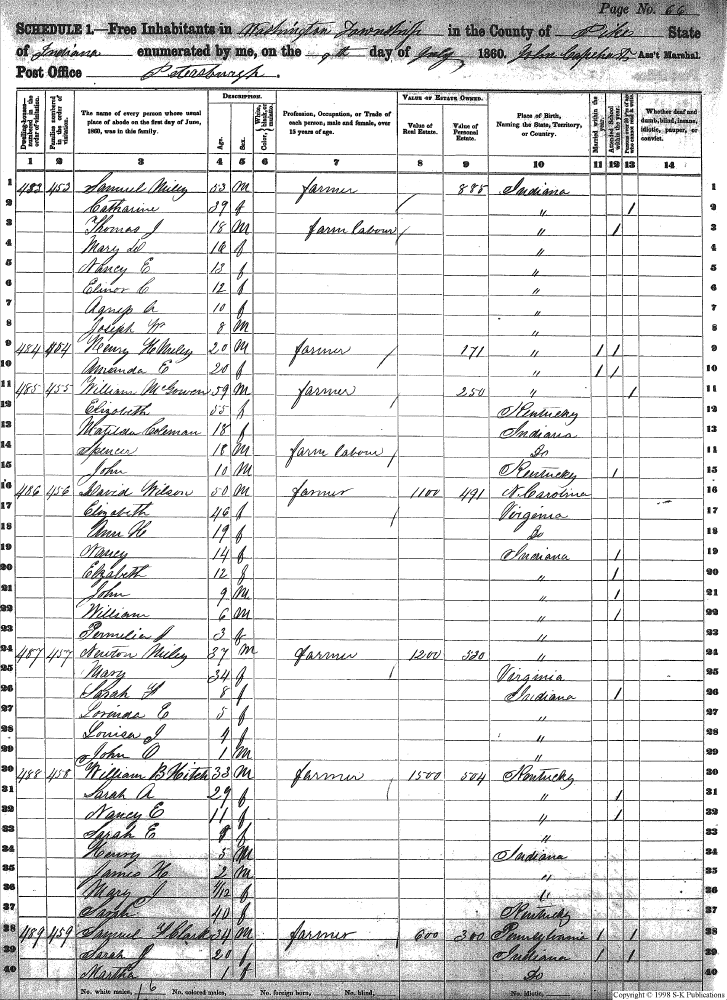 Page No. 66
SCHEDULE 1.—Free Inhabitants in Washington Township in the County of Pike State
of Indiana enumerated by me, on the 9th day of July 1860. John Ass't Marshal.
Post Office Petersburgh.
DESCRIPTION. VALUE OF ESTATE OWNED.
Dwelling-houses—numbered in the order of visitation. Families numbered in the order of visitation. The name of every person whose usual place of abode on the first day of June, 1860, was in this family. Age. Sex. Color, White, black, or mulatto. Profession, Occupation, or Trade of each person, male and female, over 15 years of age. Value of Real Estate. Value of Personal Estate. Place of Birth, Naming the State, Territory, or Country. Married within the year. Attended School within the year. Persons over 20 y'rs of age who cannot read & write. Whether deaf and dumb, blind, insane, idiotic, pauper, or convict.
1 2 3 4 5 6 7 8 9 10 11 12 13 14
1 483 453 Samuel Miley 53 m farmer 885 Indiana 1
2 Catharine 39 f " / 2
3 Thomas J 18 m farm labour " / 3
4 Mary 16 f " 4
5 Nancy E 13 f " 5
6 Elinor C 12 f " 6
7 Agness A 10 f " 7
8 Joseph W 8 m " 8
9 484 454 Henry H Miley 20 m farmer 171 " / / 9
10 Amanda E 20 f " / / 10
11 485 455 William McGowen 59 m farmer 250 " / 11
12 Elizabeth 55 f Kentucky 12
13 Matilda Coleman 18 f Indiana 13
14 Spencer 18 m farm labour Do 14
15 John 10 m Kentucky / 15
16 486 456 David Wilson 50 m farmer 1100 491 N. Carolina 16
17 Elizabeth 46 f Virginia 17
18 Ann H 19 f Do 18
19 Nancy 14 f Indiana / 19
20 Elizabeth 12 f " / 20
21 John 9 m " / 21
22 William 6 m " / 22
23 Permelia J 3 f " 23
24 487 457 Newton Miley 37 m farmer 1200 320 " 24
25 Mary 34 f Virginia 25
26 Sarah 8 f Indiana / 26
27 Lorinda E 5 f " 27
28 Louisa J 4 f " 28
29 John O 1 m " 29
30 488 458 William B Hitch 33 m farmer 1500 504 Kentucky 30
31 Sarah A 29 f " / 31
32 Nancy E 11 f " / 32
33 Sarah E 8 f " 33
34 Henry 5 m Indiana 34
35 James H 2 m " 35
36 Mary J f " 36
37 Sarah 40 f Kentucky 37
38 489 459 Samuel Clark 34 m farmer 600 300 Pennsylvania / / 38
39 Sarah J 20 f Indiana / / 39
40 Martha 1 f Do 40
No. white males, 16 No. colored males, No. foreign born, No. blind, No. idiotic,
Copyright © 1998 S-K Publications